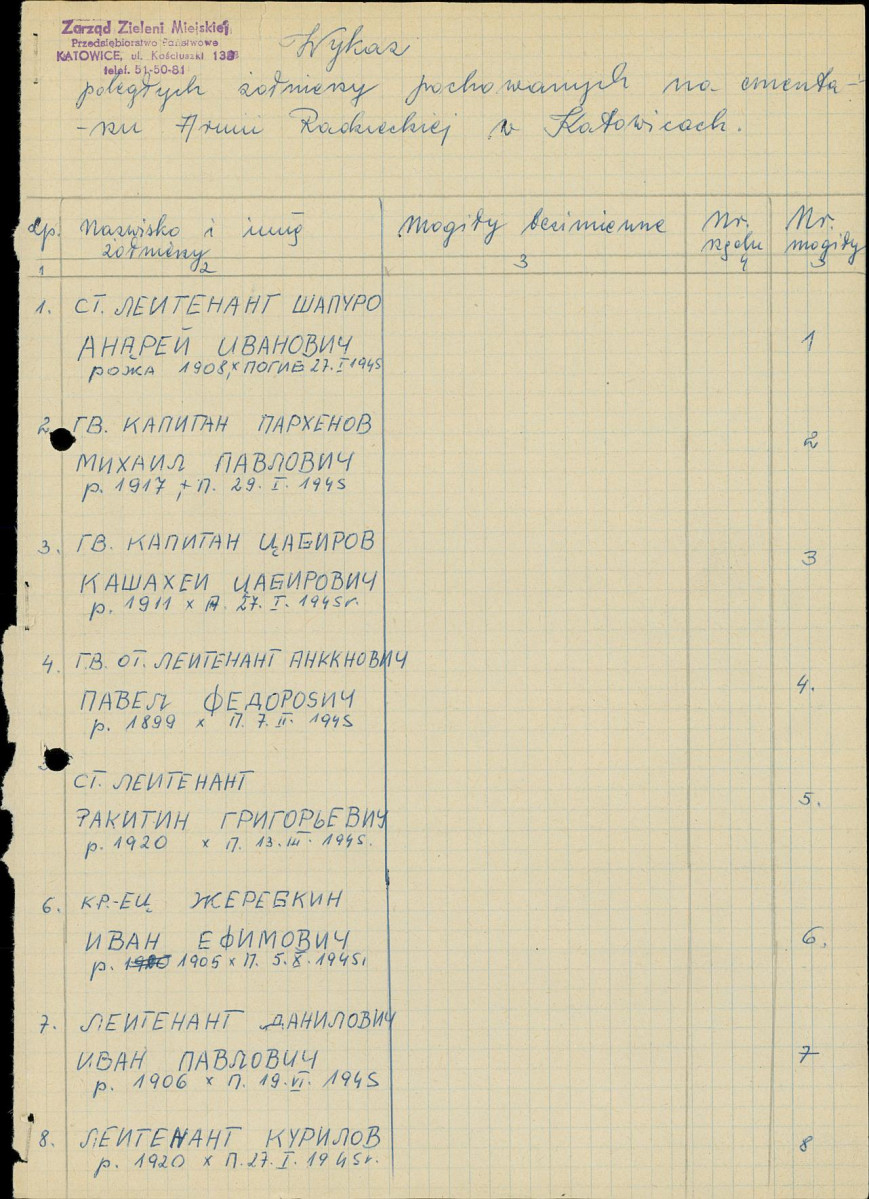 Zarząd Zieleni Miejskiej
Przedsiębiorstwo Państwowe
KATOWICE, ul. Kościuszki 138
telef. 51-50-81
Wykaz
poległych żołnierzy pochowanych na cmenta-
-rzu Armii Radzieckiej w Katowicach.
Lp. Nazwisko i imię żołnierzy Mogiły bezimienne Nr. rzędu Nr. mogiły
1 2 3 4 5
1. СТ. ЛЕИТЕНАНТ ШАПУРО
АНДРЕЙ ИВАНОВИЧ 1
РОЖА 1908, × ПОГИБ 27. I 1945
2. ГВ. КАПИТАН ПАРХЕНОВ
МИХАИЛ ПАВЛОВИЧ 2
р. 1917 + П. 29. I. 1945
3. ГВ. КАПИТАН ЦАБИРОВ
КАШАХЕИ ЦАБИРОВИЧ 3
р. 1911 × П. 27. I. 1945r.
4. ГВ. ОТ. ЛЕИТЕНАНТ АНККНОВИЧ
ПАВЕЛ ФЕДОРОВИЧ 4.
р. 1899 × П. 7. II. 1945
СТ. ЛЕИТЕНАНТ
РАКИТИН ГРИГОРЬЕВИЧ 5.
р. 1920 × П. 13. III. 1945.
6. КР.-ЕЦ ЖЕРЕБКИН
ИВАН ЕФИМОВИЧ 6.
р. 1905 × П. 5. X. 1945.
7. ЛЕИТЕНАНТ ДАНИЛОВИЧ
ИВАН ПАВЛОВИЧ 7
р. 1906 × П. 19. VI. 1945
8. ЛЕИТЕНАНТ КУРИЛОВ 8
р. 1920 × П. 27. I. 1945r.